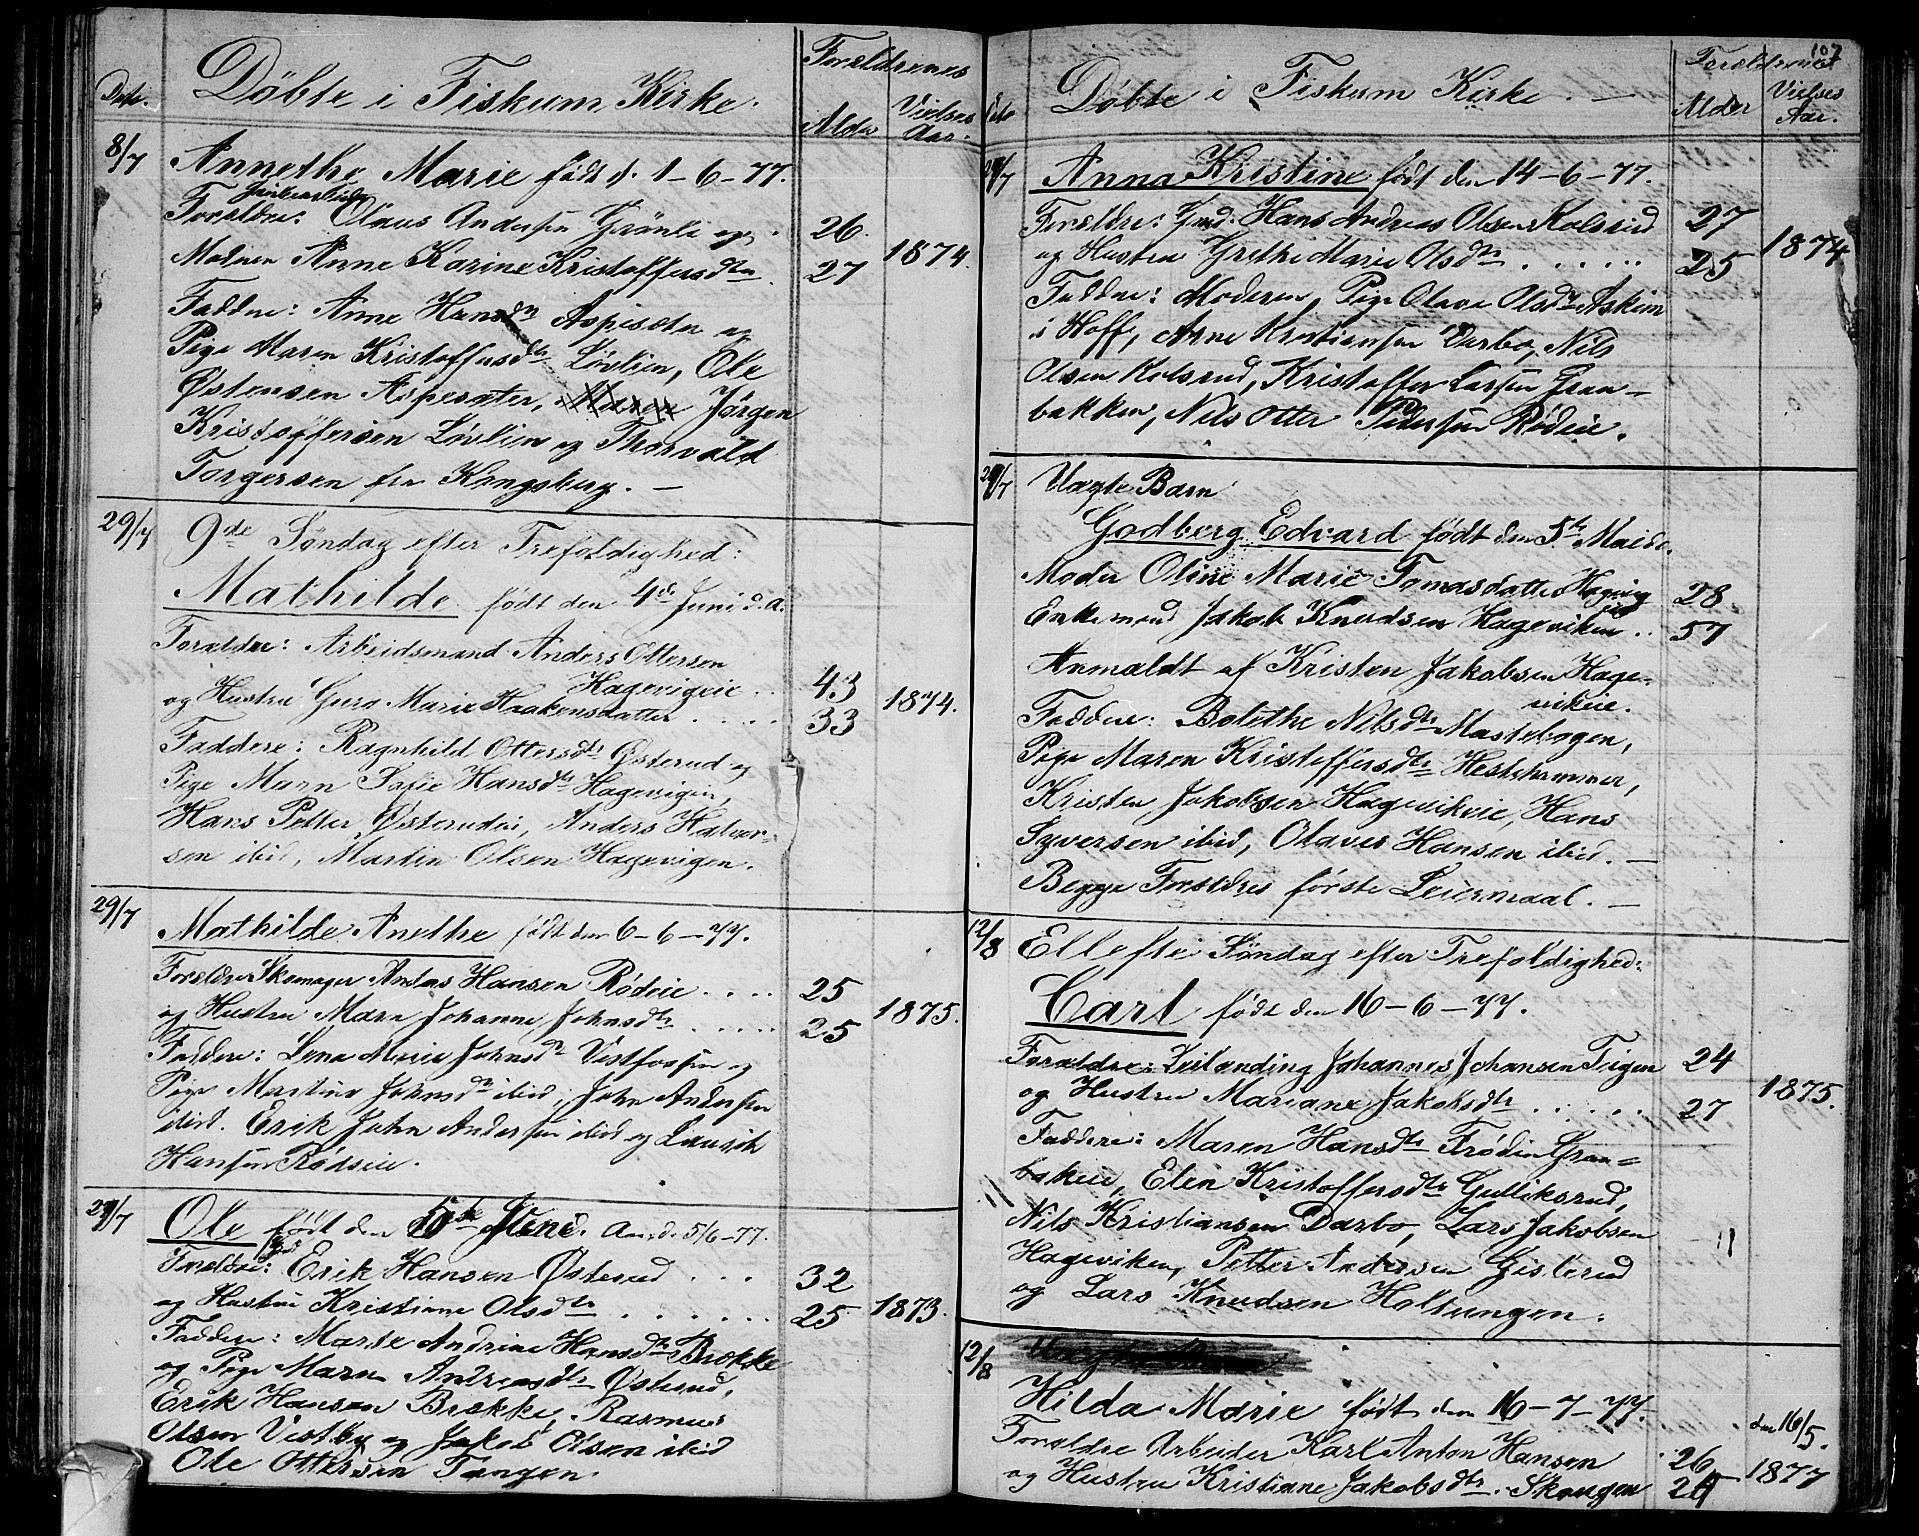 Døbte i Fiskum Kirke.
Dato.
Forældrenes
Alder
Vielses
Aar.
8/7
Annethe Marie født d. 1-6-77.
Forældre: Olaus Andersen Grönli og
26
Anne Karine Kristoffersdtr
27
1874.
Faddere: Anne Hansdtr Aspesæter og
Pige Maren Kristoffersdtr Løvlien, Ole
Østensen Aspesæter, Jørgen
Kristoffersen Løvlien og Thorvald
Torgersen fra Kongsberg. —
29/7
9de Søndag efter Trefoldighed:
Mathilde født den 4de Juni d.a.
Forældre: Arbeidsmand Anders Ottersen
Hagevigeie
43
og Hustru Guro Marie Haakensdatter
33
1874.
Faddere: Ragnhild Ottersdtr Østerud og
Pige Maren Sofie Hansdtr Hagevigen,
Hans Petter Østerudeie, Anders Halvor-
sen ibid, Martin Olsen Hagevigen.
29/7
Mathilde Anethe født den 6-6-77.
Forældre Skomager Anders Hansen Rødeie
25
og Hustru Maren Johanne Johnsdtr
25
1875.
Faddere: Lena Marie Johnsdtr Vestfossen og
Pige Martina Johnsdtr ibid, John Andersen
ibid. Erik John Andersen ibid og Laurik
Hansen Rødseie.
29/7
Ole født den 5te Juni. Anmd. 5/6-77.
Forældre: Erik Hansen Østerud
32
og Hustru Kristiane Olsdtr
25
1873.
Faddere: Marte Andrine Hansdtr Brække
og Pige Maren Andreasdtr Østerud,
Erik Hansen Brække, Rasmus
Olsen Vestby og Jakob Olsen ibid
Ole Ottersen Tangen.
107
Døbte i Fiskum Kirke. —
Dato
Forældrenes
Alder
Vielses
Aar.
29/7
Anna Kristine født den 14-6-77.
Forældre: Gmd. Hans Andreas Olsen Kolsrud
27
og Hustru Grethe Marie Olsdtr
25
1874
Faddere: Moderen, Pige Olava Olsdtr Askim
i Hoff, Arne Kristiansen Darbo, Nils
Olsen Kolsrud, Kristoffer Larsen Gran-
bakken, Nils Otter Pedersen Rødeie.
29/7
Uægte Barn
Godberg Edvard født den 5te Mai d.
Moder Oline Marie Tomasdatter Hagevig
28
Enkemand Jakob Knudsen Hageviken
57
Anmeldt af Kristen Jakobsen Hage-
vikeie.
Faddere: Bolethe Nilsdtr Mastebogen,
Pige Maren Kristoffersdtr Hestehammer,
Kristen Jakobsen Hagevikeie, Hans
Syversen ibid, Olaves Hansen ibid. —
Begge Forældres første Leiermaal. —
12/8
Ellefte Søndag efter Trefoldighed:
Carl født den 16-6-77.
Forældre: Leilending Johannes Johansen Teigen
24
og Hustru Mariane Jakobsdtr
27
1875.
Faddere: Maren Hansdtr Frøden Gran-
bakeie, Elen Kristoffersdtr Gulliksrud,
Nils Kristiansen Darbo, Lars Jakobsen
Hageviken, Petter Andersen Gislerud
og Lars Knudsen Holtungen.
12/8
Hilda Marie født den 16-7-77.
den 16/5.
Forældre Arbeider Karl Anton Hansen
26
og Hustru Kristiane Jakobsdtr. Skougen
1877